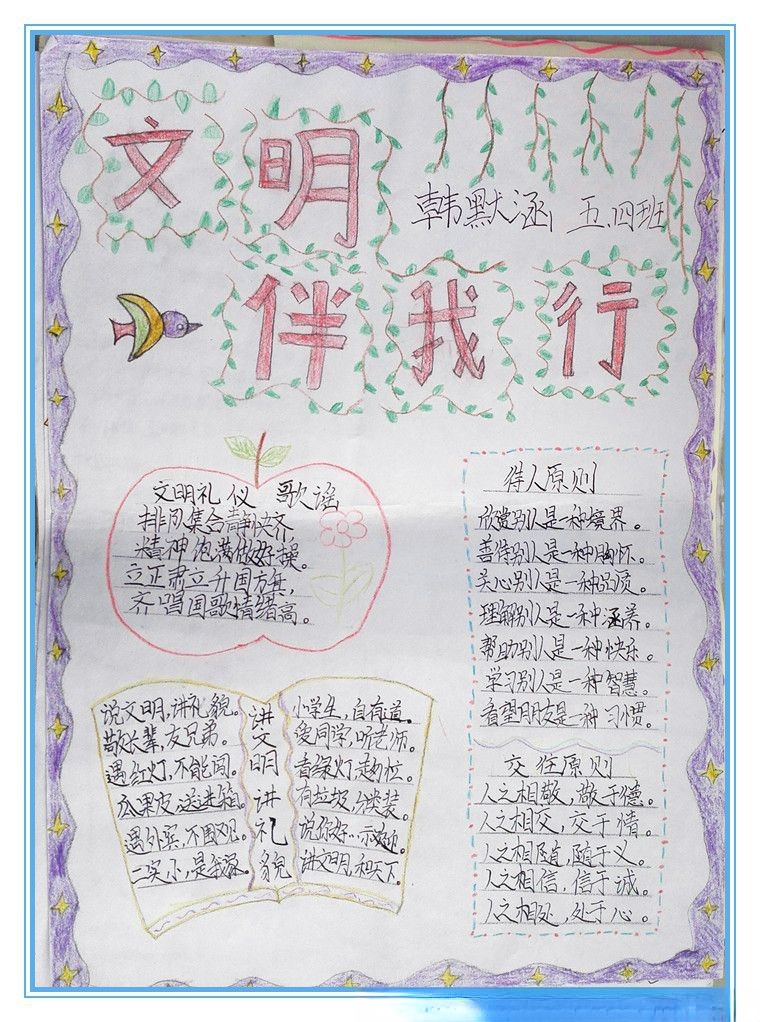 文明
韩默涵 五.四班
伴我行
文明礼仪 歌谣
排队集合静快齐,
精神饱满做好操。
立正肃立升国方兵,
齐唱国歌情绪高。
待人原则
欣赏别人是一种境界。
善待别人是一种胸怀。
关心别人是一种品质。
理解别人是一种涵养。
帮助别人是一种快乐。
学习别人是一种智慧。
看望朋友是一种习惯。
交往原则
人之相敬,敬于德。
人之相交,交于情。
人之相随,随于义。
人之相信,信于诚。
人之相处,处于心。
讲文明讲礼貌
说文明,讲礼貌。
敬长辈,友兄弟。
遇红灯,不能闯。
瓜果皮,送进箱。
遇外宾,不围观。
二实小,是我家。
小学生,自有道。
爱同学,听老师。
有垃圾,分类装。
说你好
讲文明,和天下。